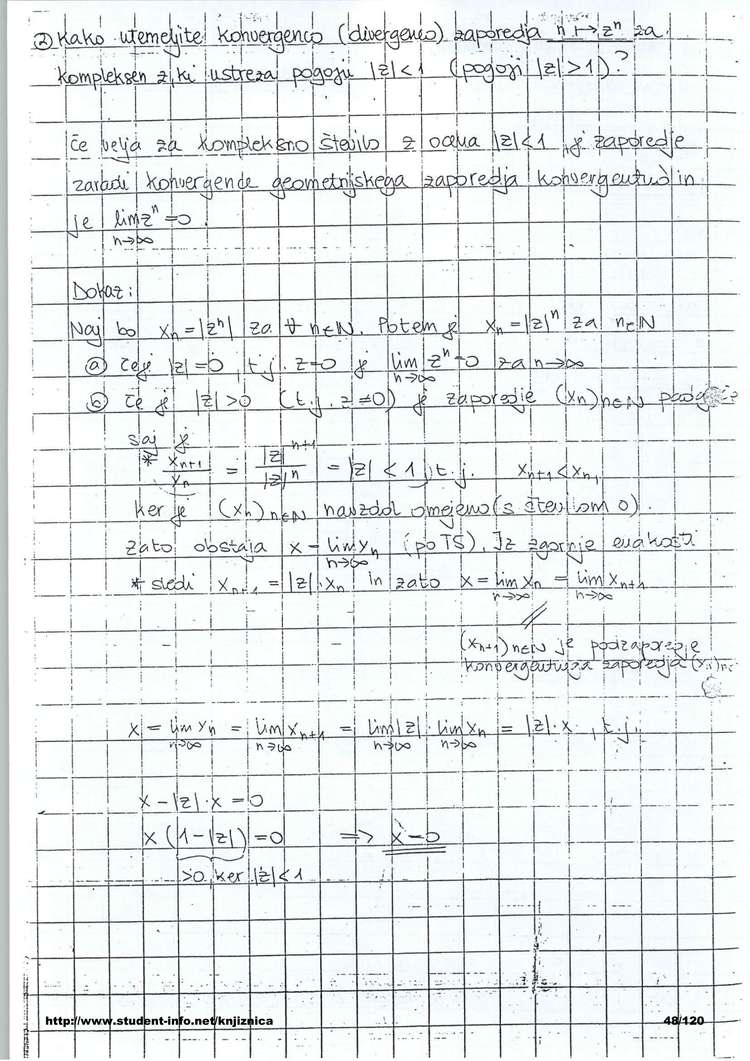 ② Kako utemeljite konvergenco (divergenco) zaporedja n ↦ zⁿ za
kompleksen z, ki ustreza pogoju |z|<1 (pogoji |z|>1)?
Če velja za kompleksno število z ocena |z|<1, je zaporedje
zaradi konvergence geometrijskega zaporedja konvergentno in
je lim zⁿ=0
n→∞
Dokaz:
Naj bo xₙ=|zⁿ| za ∀ n∈N. Potem je xₙ=|z|ⁿ za n∈N
ⓐ če je |z|=0, t.j. z=0 je lim zⁿ=0 za n→∞
n→∞
ⓑ če je |z|>0 (t.j. z≠0) je zaporedje (xₙ)n∈N
saj je
* xₙ₊₁/xₙ = |z|ⁿ⁺¹/|z|ⁿ = |z| < 1, t.j. xₙ₊₁<xₙ,
ker je (xₙ)n∈N navzdol omejeno (s številom 0).
Zato obstaja x = lim xₙ (po TS). Iz zgornje enakosti
n→∞
* sledi xₙ₊₁ = |z|·xₙ in zato x = lim xₙ = lim xₙ₊₁
n→∞ n→∞
(xₙ₊₁)n∈N je podzaporedje
konvergentnega zaporedja (xₙ)n∈
x = lim xₙ = lim xₙ₊₁ = lim|z| · lim xₙ = |z|·x, t.j.
n→∞ n→∞ n→∞ n→∞
x-|z|·x = 0
x(1-|z|) = 0 => x=0
>0, ker |z|<1
http://www.student-info.net/knjiznica 48/120